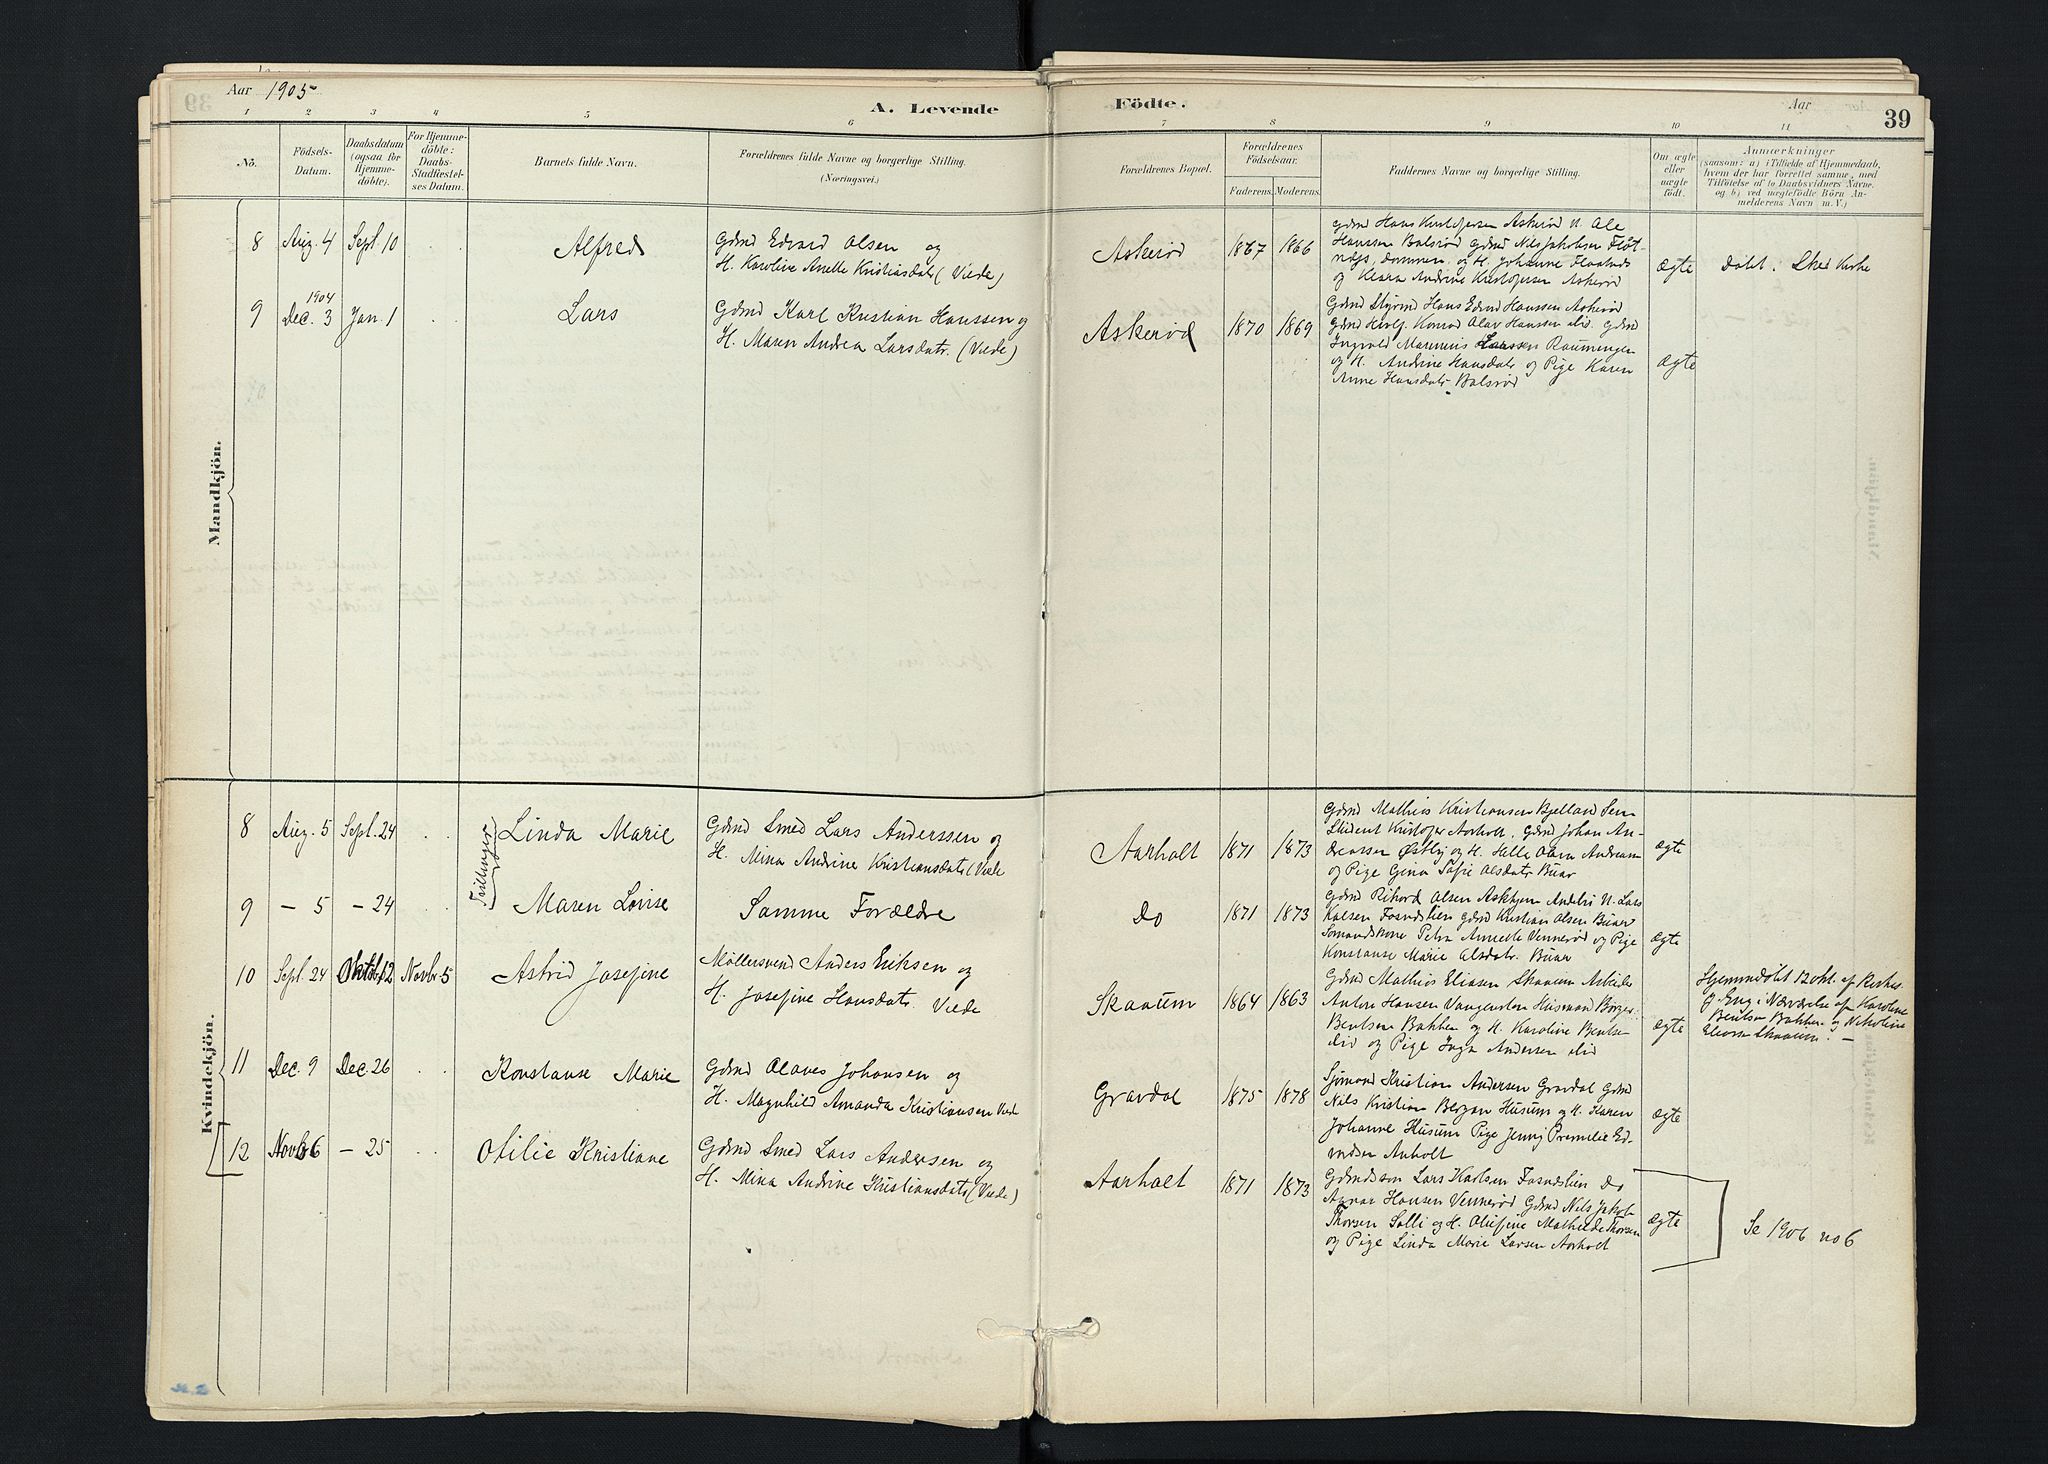 Aar 1905
A. Levende
Födte.
Aar
39
1 2 3 4 5 6 7 8 9 10 11
No.
Födsels-
Datum.
Daabsdatum
(ogsaa for
Hjemme-
döbte).
For Hjemme-
döbte:
Daabs-
Stadfæstel-
ses Datum.
Barnets fulde Navn.
Forældrenes fulde Navne og borgerlige Stilling.
(Næringsvei.)
Forældrenes Bopæl.
Forældrenes
Födselsaar.
Faderens. Moderens.
Faddernes Navne og borgerlige Stilling.
Om ægte
eller
uægte
födt.
Anmærkninger
(saasom: a) i Tilfælde af Hjemmedaab,
hvem der har forrettet samme, med
Tilföielse af to Daabsvidners Navne,
og b) ved uægtefödte Börn An-
melderens Navn m. V.)
Mandkjön.
8 Aug. 4 Sept. 10 Alfred
Gdmd Edvard Olsen og
H. Karoline Anette Kristiansdatr (Viede)
Askerød 1867 1866
Gdmd Hans Kristofersen Askerød U. Ole
Hanssen Balsrød Gdmd Nils Jakobsen
og H. Johanne
og Klara Andrine Kristofersen Askerød
ægte
Døbt i Sked Kirke
9 1904
Dec. 3 Jan. 1 Lars
Gdmd Karl Kristian Hanssen og
H. Maren Andrea Larsdatr. (Viede)
Askerød 1870 1869
Gdmd Styrmd Hans Edvard Hanssen Askerød
Gdmd Konrad Olav Hanssen Gdmd
Ingvald Larssen
og H. Andrine Hansdatr og Pige Karen
Anne Hansdatr Balsrød
ægte
Kvindekjön.
Tvillinger
8 Aug. 5 Sept. 24 Linda Marie
Gdmd Smed Lars Anderssen og
H. Mina Andrine Kristiansdatr (Viede
Aarholt 1871 1873
Gdmd Mathias Kristiansen Bjelland
Student Kristofer Aarholt, Gdmd Johan An-
dreassen Østby og H. Helle
og Pige Gina Sofie Olsdatr Buar
ægte
9 — 5 — 24 Maren Lovise
Samme Forældre
Do 1871 1873
Gdmd Rikard Olsen U. Lars
Karlsen Fosnæslien Gdmd Kristian Olsen Buar
Sømandskone Petra Annette Vennerød og Pige
Konstanse Marie Olsdatr. Buar
ægte
10 Sept. 24 Oktob. 12 Novbr 5 Astrid Josefine
Møllersvend Anders Eriksen og
H. Josefine Hansdatr. Viede
Skaaum 1864 1863
Gdmd Mathias Eliasen Skaaum Arbeider
Anders Hansen Husmand Børger
Bentsen Bakken og H. Karoline Bentse
og Pige Inga Andersen
ægte
Hjemmedøbt 12 Okt. af Kirkes.
g. Eng i Nærværelse af Karoline
Bentsen Bakken og Nikoline
Skaaum. —
11 Dec. 9 Dec. 26 Konstanse Marie
Gdmd Olaves Johansen og
H. Magnhild Amanda Kristiansen Vied
Gravdal 1875 1878
Sjømand Kristian Andersen Gravdal Gdmd
Nils Kristian Bergan Husum og H. Karen
Johanne Husum Pige Jenny Premilie Ed-
Anholt
ægte
12 Novb 6 — 25 Otilie Kristiane
Gdmd Smed Lars Andersen og
H. Mina Andrine Kristiansdatr (Viede)
Aarholt 1871 1873
Gdmdssøn Lars Karlsen Fosnæslien Do
Hansen Vennerød Gdmd Nils Jakob
Thorsen Solli og H. Olufine Mathilde Thorsen
og Pige Linda Marie Larsen Aarholt
ægte
Se 1906 no 6